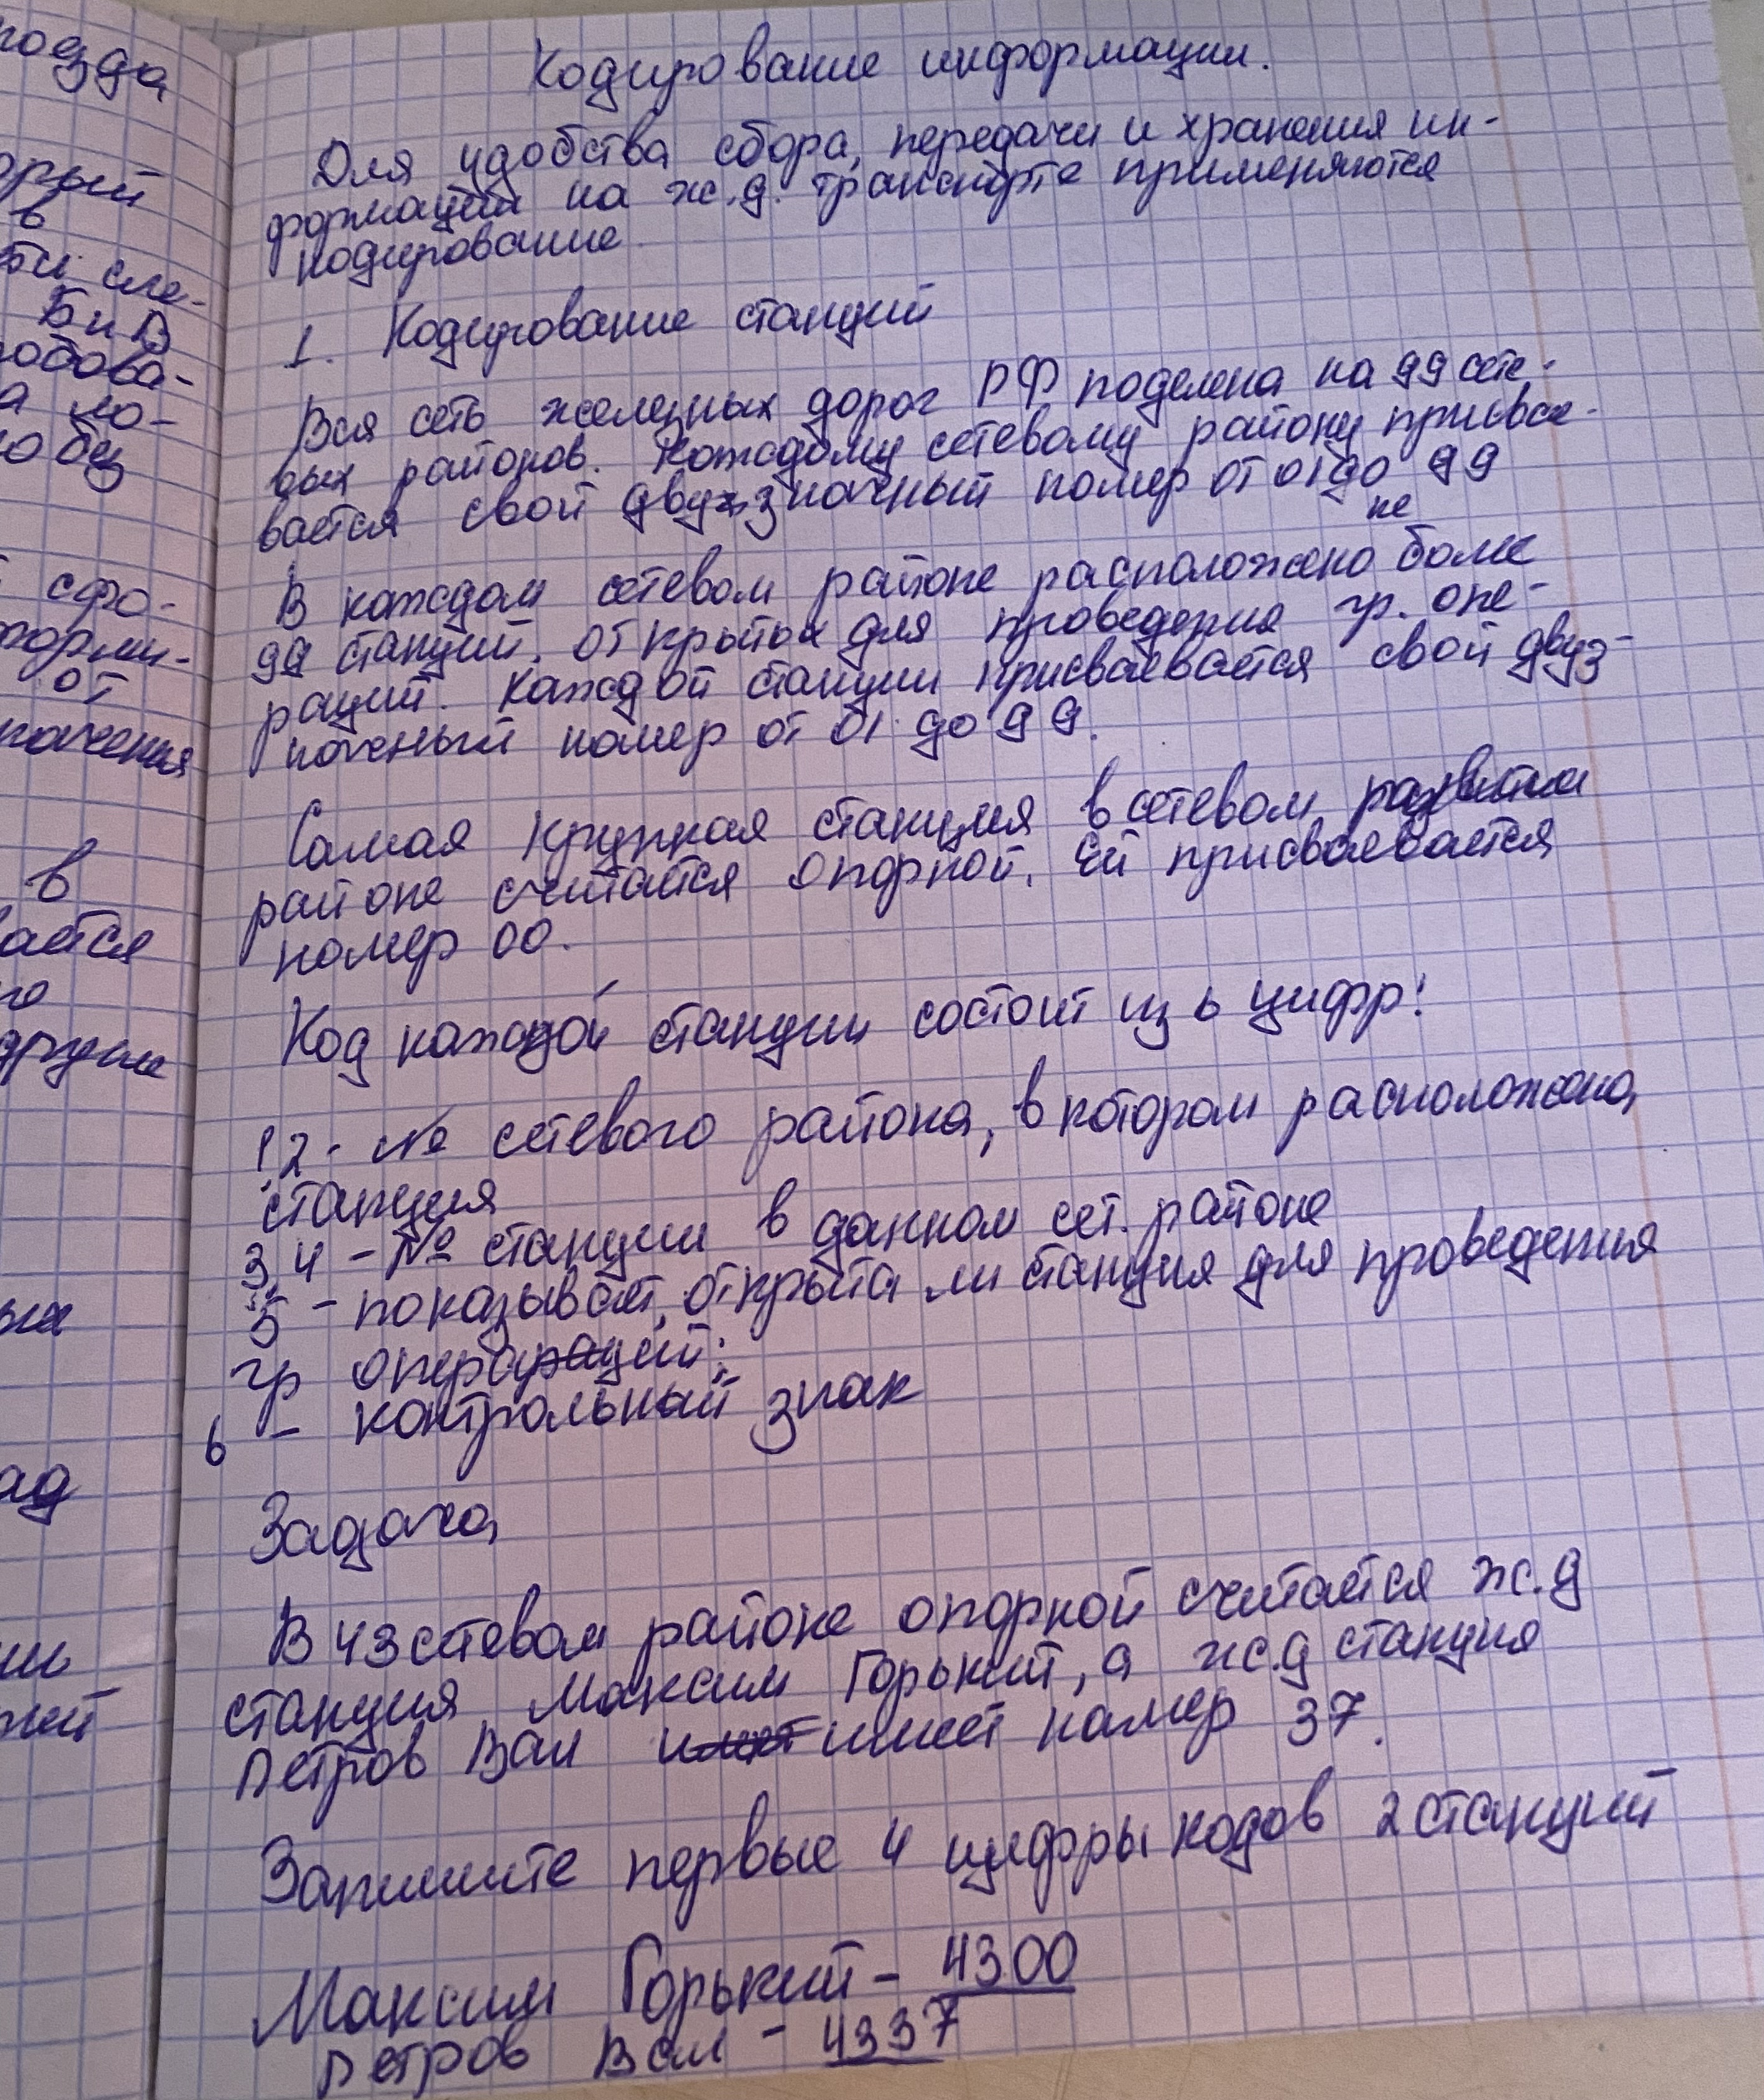 поезда
орый
в
сле-
Б и В
робова-
а ло-
о без
сфо-
форми-
от
начения
в
вается
го
другим
ных
ад
ший
Кодирование информации.
Для удобства сбора, передачи и хранения ин-
формации на ж.д. транспорте применяются
кодирование
1. Кодирование станций
Вся сеть железных дорог РФ поделена на 99 сете-
вых районов. Каждому сетевому району присваи-
вается свой двузначный номер от 01 до 99
не
В каждом сетевом районе расположено более
99 станций, открытых для проведения гр. опе-
раций. Каждой станции присваевается свой двуз-
наченый номер от 01 до 99.
Самая крупная станция в сетевом развитии
районе считается опорной. Ей присваевается
номер 00.
Код каждой станции состоит из 6 цифр:
1,2 - № сетевого района, в котором расположена
станция
3,4 - № станции в данном сет. районе
5 - показывает, открыта ли станция для проведения
гр операраций;
6 - контрольный знак
Задача
В 43 сетевом районе опорной считается ж.д
станция Максим Горький, а ж.д станция
Петров Вал имеет имеет номер 37.
Запишите первые 4 цифры кодов 2 станций
Максим Горький - 4300
Петров Вал - 4337